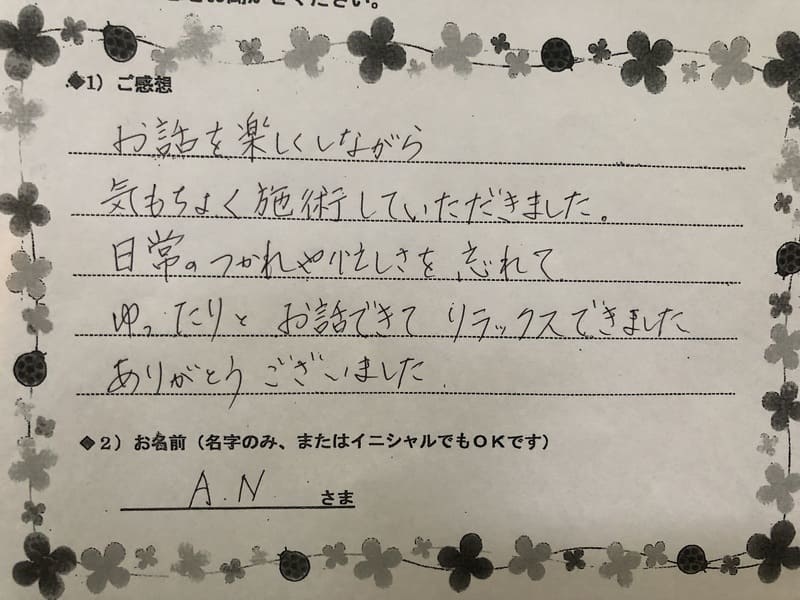 ください。
◆1）ご感想
お話を楽しくしながら
気もちよく施術していただきました。
日常のつかれや忙しさを忘れて
ゆったりとお話できてリラックスできました
ありがとうございました
◆2）お名前（名字のみ、またはイニシャルでもＯＫです）
A.N さま